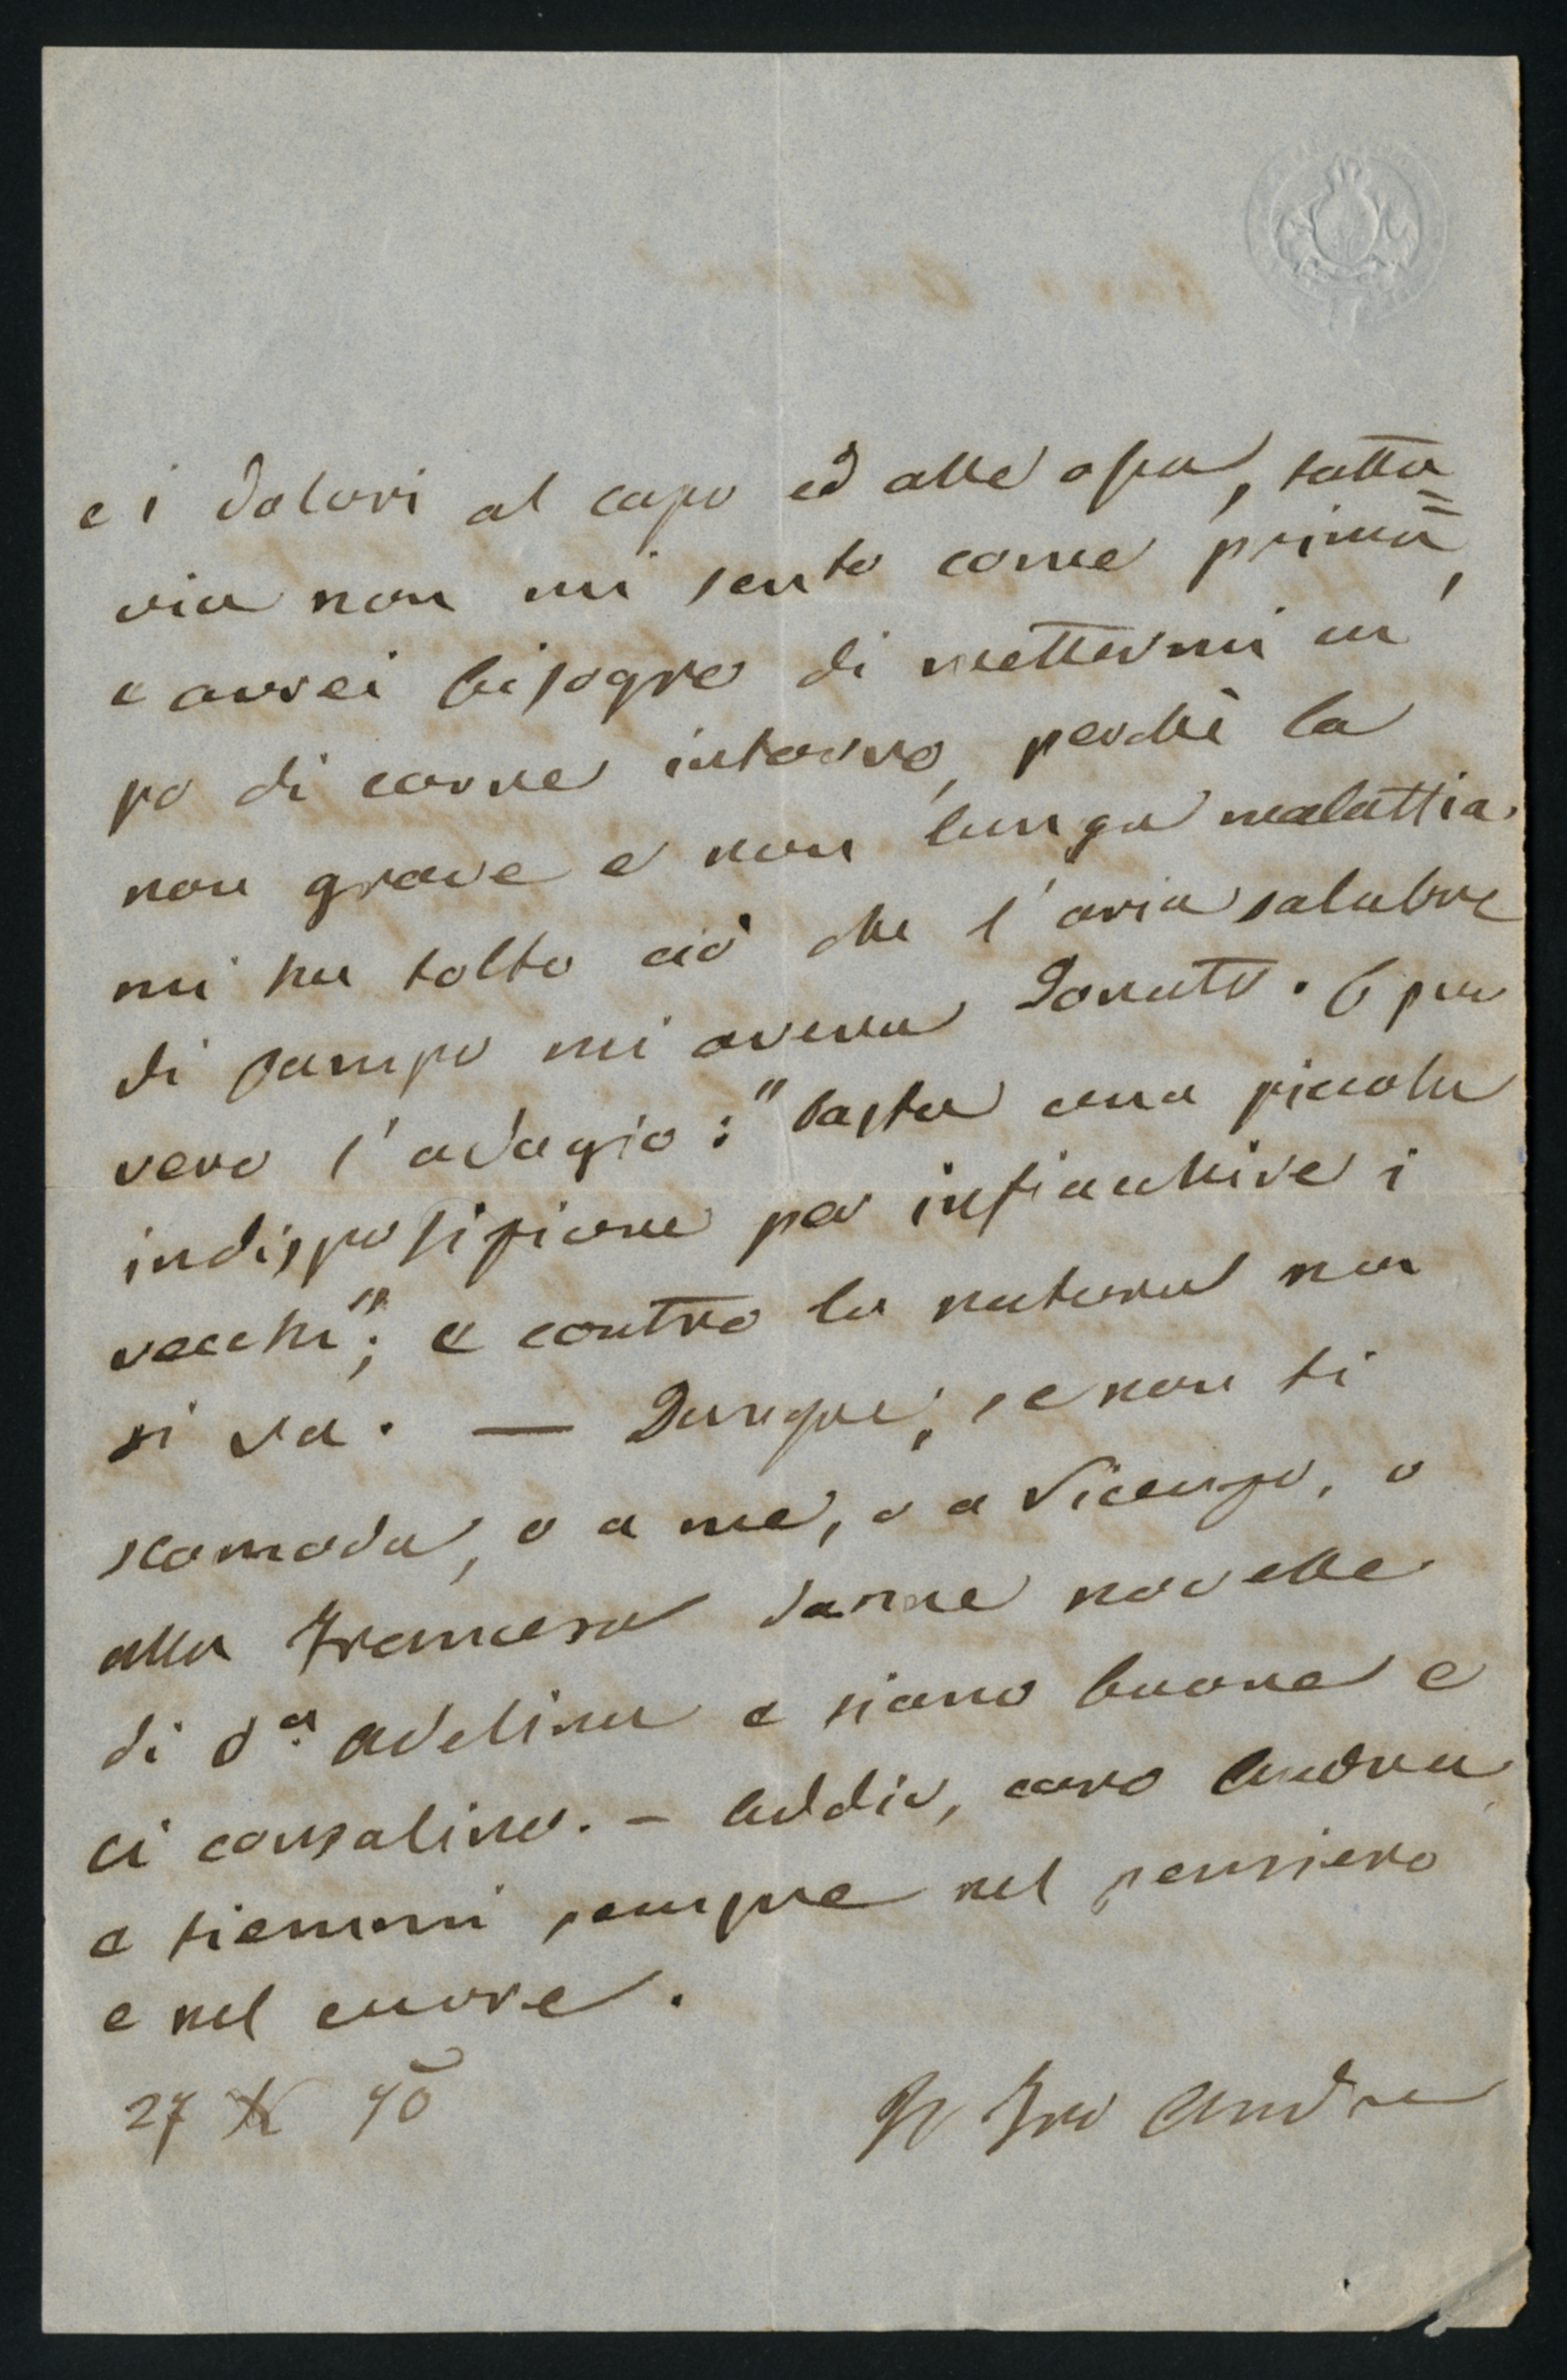 e i dolori al capo ed alle ossa, tutta=
via non mi sento come prima,
e avrei bisogno di mettermi un
po di carne intorno, perchè la
non grave e non lunga malattia
mi ha tolto ciò che l'aria salubre
di campo mi aveva donato. È pur
vero l'adagio: "basta una piccola
indisposizione per infiacchire i
vecchi"; e contro la natura non
si va. — Dunque, se non ti
scomoda, o a me, o a Vicenzo, o
alla Francesca danne novelle
di d.a Adelina e siano buone e
ci consolino. - Addio, caro Andrea
e tiemmi sempre nel pensiero
e nel cuore.
27 X 90
Andrea